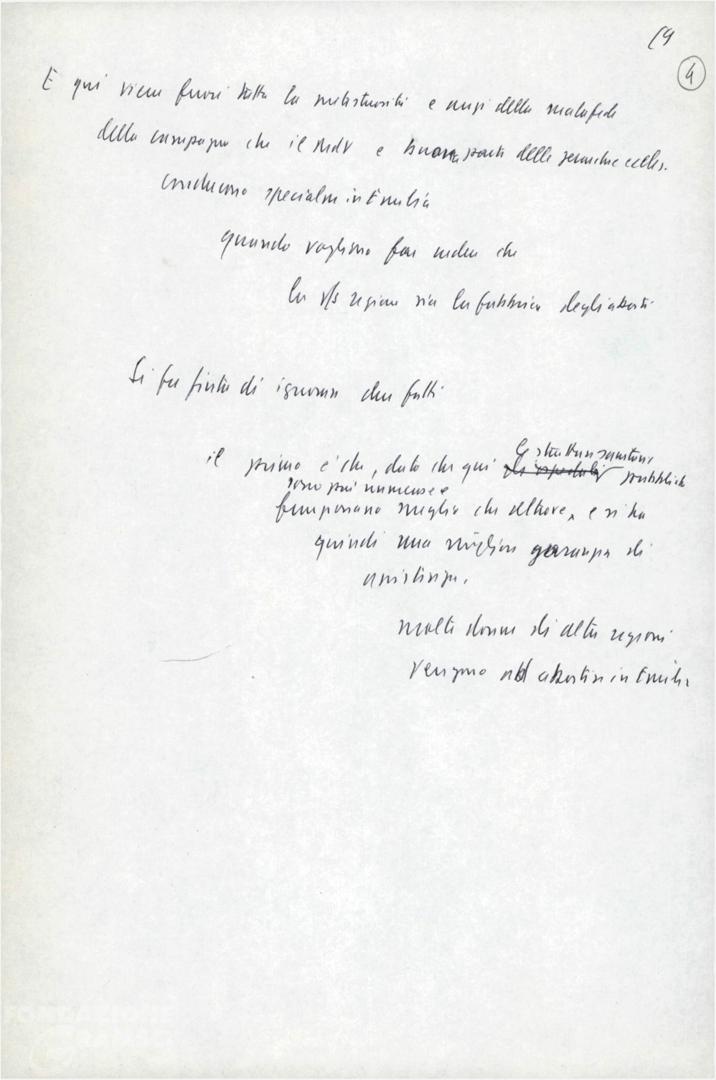 19
4
E qui viene fuori tutta la e anzi della malafede
della campagna che il MdV e buona parte delle gerarchie eccles.
conducono specialm in Emilia
quando vogliono far veder che
la v/s regione sia la fabbrica degli aborti
Si fa finta di ignorare due fatti
il primo è che, dato che qui le strutture sanitarie pubbliche
sono più numerose e
funzionano meglio che altrove, e si ha
quindi una migliore garanzia di
assistenza,
molte donne di altre regioni
vengono ad abortire in Emilia
FONDAZIONE